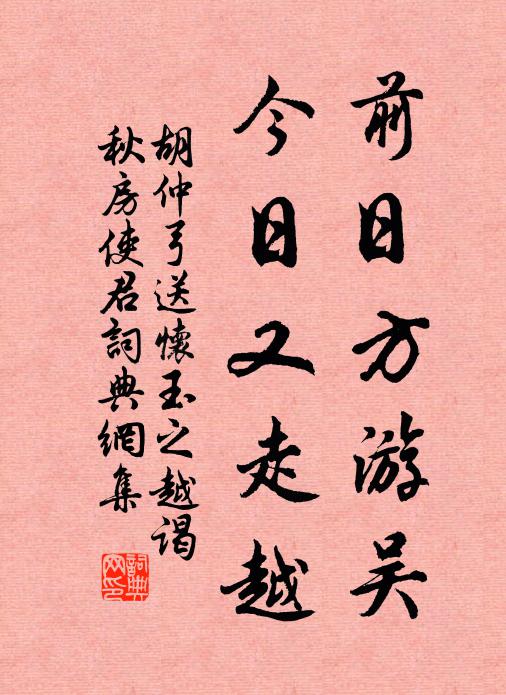 前日方游吴
今日又走越
胡仲弓送懷玉之越谒
秋房使君詞典網集
詞典
网印